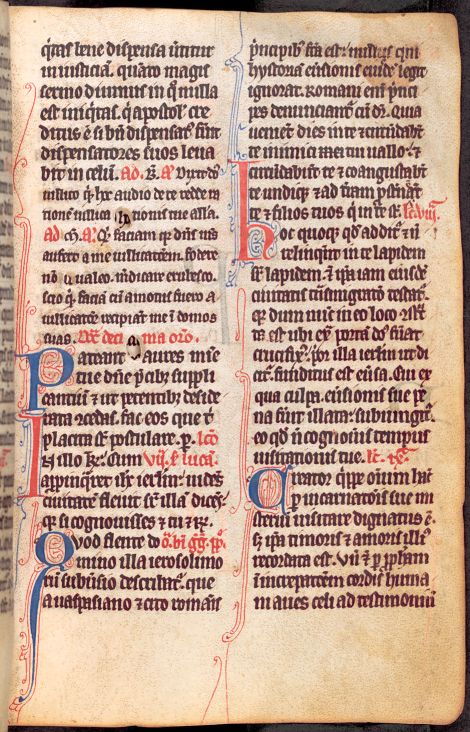 ē tas bene dispensa
in iusticiā. quāto magis
sermo diuinus in q̄ nulla
est iniq̄tas. q̄ apostol' cre
ditus ē si bn̄ dispensat'
dispensatores suos leua
bit in celū. Ad. B.
uillico q̄ hoc audio de te redde ra
tionē
Ad M. A. Qd faciam q̄ dn̄s
aufert a me uillicatiōem. fodere
nō ualeo. m̄dicare erubesco.
scio q̄ faciā cū amotus fuero a
uillicatōe recipiāt me ī domos
suas. Dn̄c deci ma orō.
Pateant aures mīe
tue dn̄e p̄cibꝫ suppli
cantiū ⁊ ut petentibꝫ deside
rata ɔcedas. fac eos que t'
placita sūt postulare. p. Lc̄o
In illo t̄. Cum VII. s. lucā.
appinq̄ret ih̄c ierl̄m. uidēs
ciuitatē fleuit sr̄ illā dicēs.
q̄ si cognouisses ⁊ tu ⁊ c̄.
Quod flente do o. bī gg̃. p̄p.
mino illa ierosolimo
rū subuersio describat'. que
a uaspasiano ⁊ tito romanis
p̄ncipibꝫ fc̄a est. nullus qui
hystoriā euersionis eiusdē legit
ignorat. Romani eni p̄nci
pes denunciant' cū dr̄. Quia
uenient dies in te ⁊ circūdabūt
te inimici tui uallo. ⁊
circūdabūt te ⁊ coangustabt
te undiq̄ꝫ ⁊ ad t̄ram p̄st'nēt
te ⁊ filios tuos q̄ in te sūt. Lc̄. VIII.
Hoc quoqꝫ qd addit' nō
relinquēt in te lapidem
sr̄ lapidem. ⁊ ip̄a iam eiusdē
ciuitatis tn̄smigratō testat'.
q̄ dum nūc in eo loco
ta est ubi ext̄ portā dn̄s fuat
crucifix'. prior illa ierl̄m ut di
cit'. funditus est eūsa. Cui ex
qua culpa euersionis sue pe
na fūit illata. subiungit'.
eo qd n̄ cognouis tempus
uisitationis tue. Lc̄. IX.
Creator q̄ppe oīum hāc
p incarnatōis sue mi
steriū uisitare dignatus ē.
sꝫ ip̄a timoris ⁊ amoris illi'
recordata n̄ est. Vn̄ ⁊ p p̄pham
in increpatōem cordis huma
ni aues celi ad testimoniū